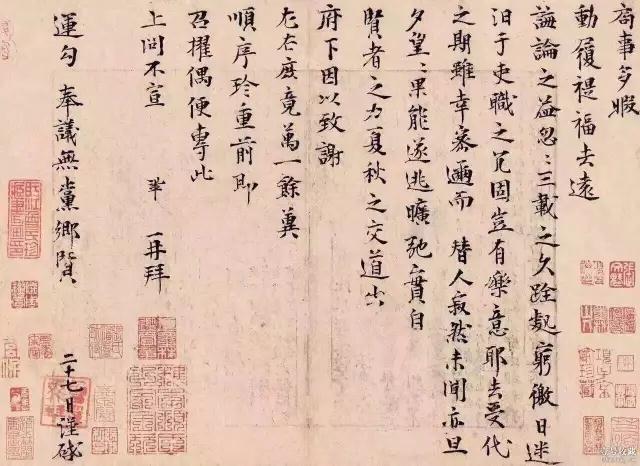 局事多暇
動履禔福去遠
誨論之益忽〻三載之久跧處窮徼日迷
汨于吏職之冗固豈有樂意耶去受代
之期雖幸密邇而 替人寂然未聞亦旦
夕望〻果能遂逃曠弛實自
賢者之力夏秋之交道出
府下因以致謝
左右庶竟萬一餘冀
順序珍重前即
召擢偶便專此
上問不宣 鞏 再拜
運勾奉議無黨鄉賢 二十七日謹啓